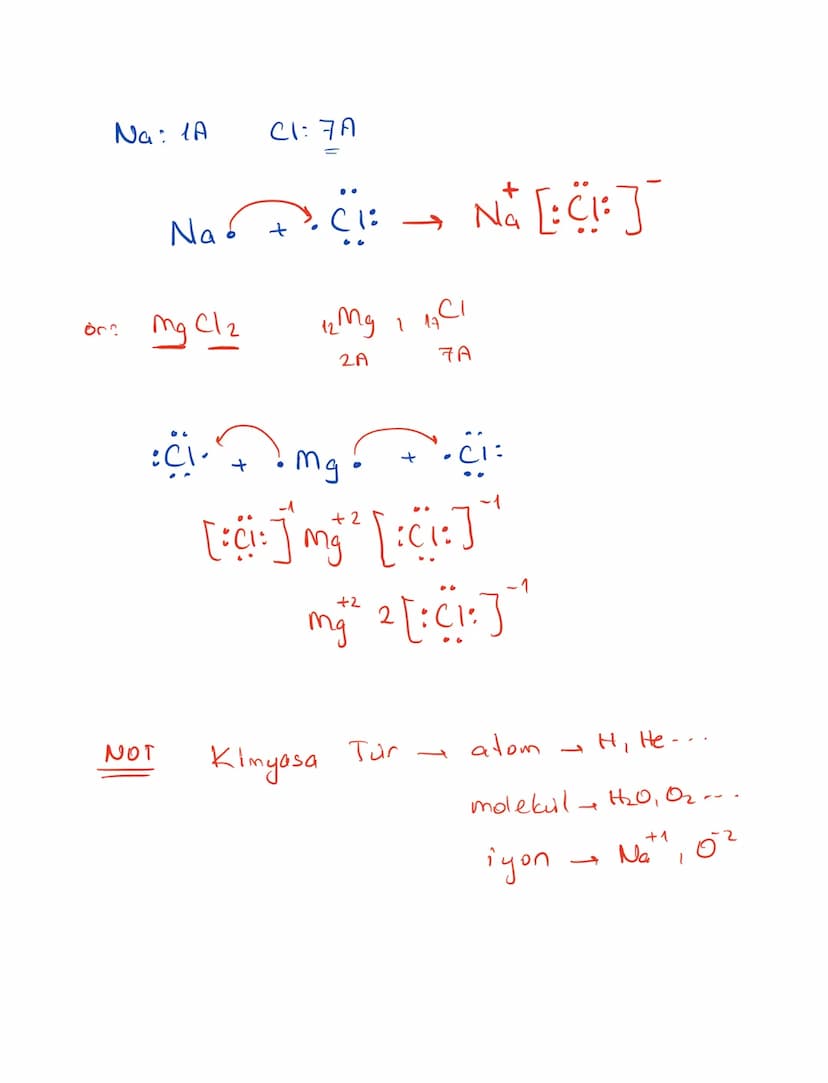 Na: 1A Cl: 7A
Na• + •C̈l: → Na⁺ [:C̈l:]⁻
ör: MgCl₂ ₁₂Mg, ₁₇Cl
2A 7A
:C̈l• + •Mg• + •C̈l:
[:C̈l:]⁻¹ Mg⁺² [:C̈l:]⁻¹
Mg⁺² 2[:C̈l:]⁻¹
NOT Kimyasa Tür → atom → H, He...
molekül → H₂O, O₂...
iyon → Na⁺¹, O⁻²